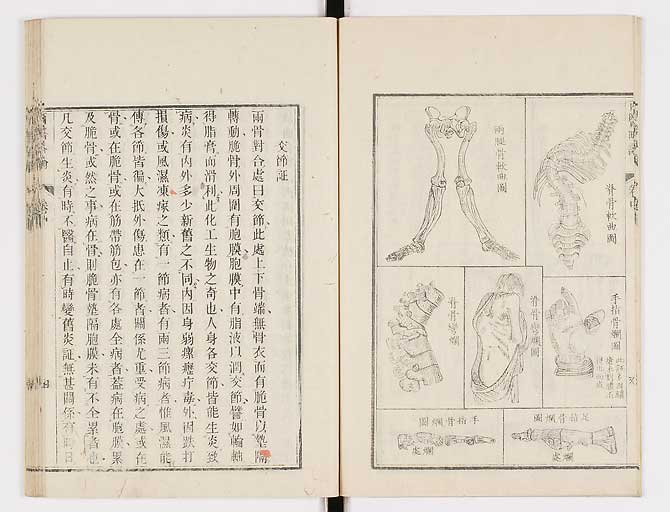 脊骨軟曲圖
兩腿骨軟曲圖
手指骨爛圖
脊骨彎爛圖
脊骨彎爛
足指骨爛圖
爛處
手指骨爛圖
爛處
交節証
兩骨對合處曰交節此處上下骨端無骨衣而有脆骨以墊隔
轉動脆骨外周圍有胞膜胞膜中有脂液以潤交節譬如輪軸
得脂膏而滑利此化工生物之奇也人身各交節皆能生炎致
病炎有內外多少新舊之不同內因身弱瘰癧疔毒外因跌打
損傷或風濕凍瘃之類有一節病者有兩三節病者惟風濕能
傳各節皆徧大抵外傷患在一節者關係尤重受病之處或在
骨或在脆骨或在筋帶筋包亦有各處全病者葢病在胞膜累
及脆骨或然之事病在骨則脆骨墊隔胞膜未有不全累者也
凡交節生炎有時不醫自止有時變舊炎証無甚關係有時日